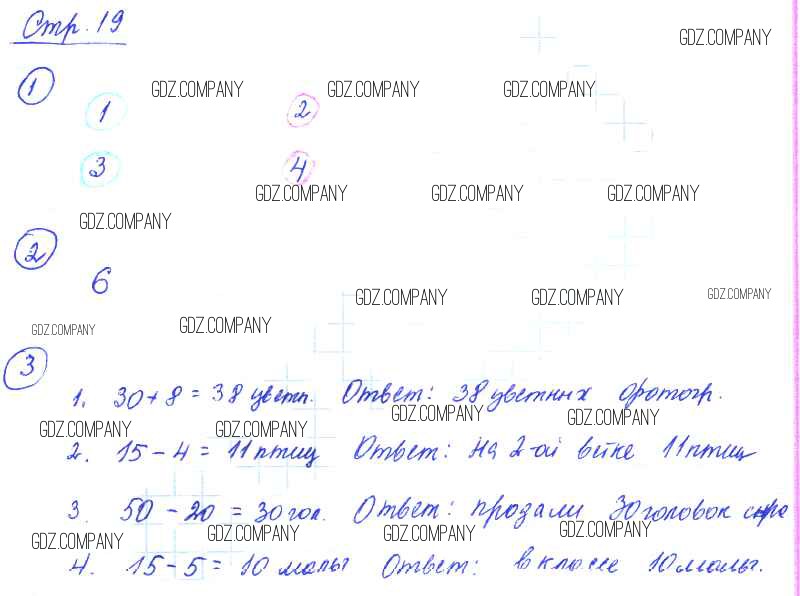 Стр. 19
GDZ.COMPANY
1
GDZ.COMPANY GDZ.COMPANY GDZ.COMPANY
1 2
3 4
GDZ.COMPANY GDZ.COMPANY GDZ.COMPANY
GDZ.COMPANY
2
6
GDZ.COMPANY GDZ.COMPANY GDZ.COMPANY
GDZ.COMPANY GDZ.COMPANY
3
1. 30+8=38 цветн. Ответ: 38 цветных фотогр.
GDZ.COMPANY GDZ.COMPANY
GDZ.COMPANY GDZ.COMPANY
2. 15-4=11 птиц Ответ: на 2-ой ветке 11 птиц
3. 50-20=30 гол. Ответ: продали 30 головок сыра
GDZ.COMPANY GDZ.COMPANY GDZ.COMPANY GDZ.COMPANY
4. 15-5=10 мальч Ответ: в классе 10 мальч.